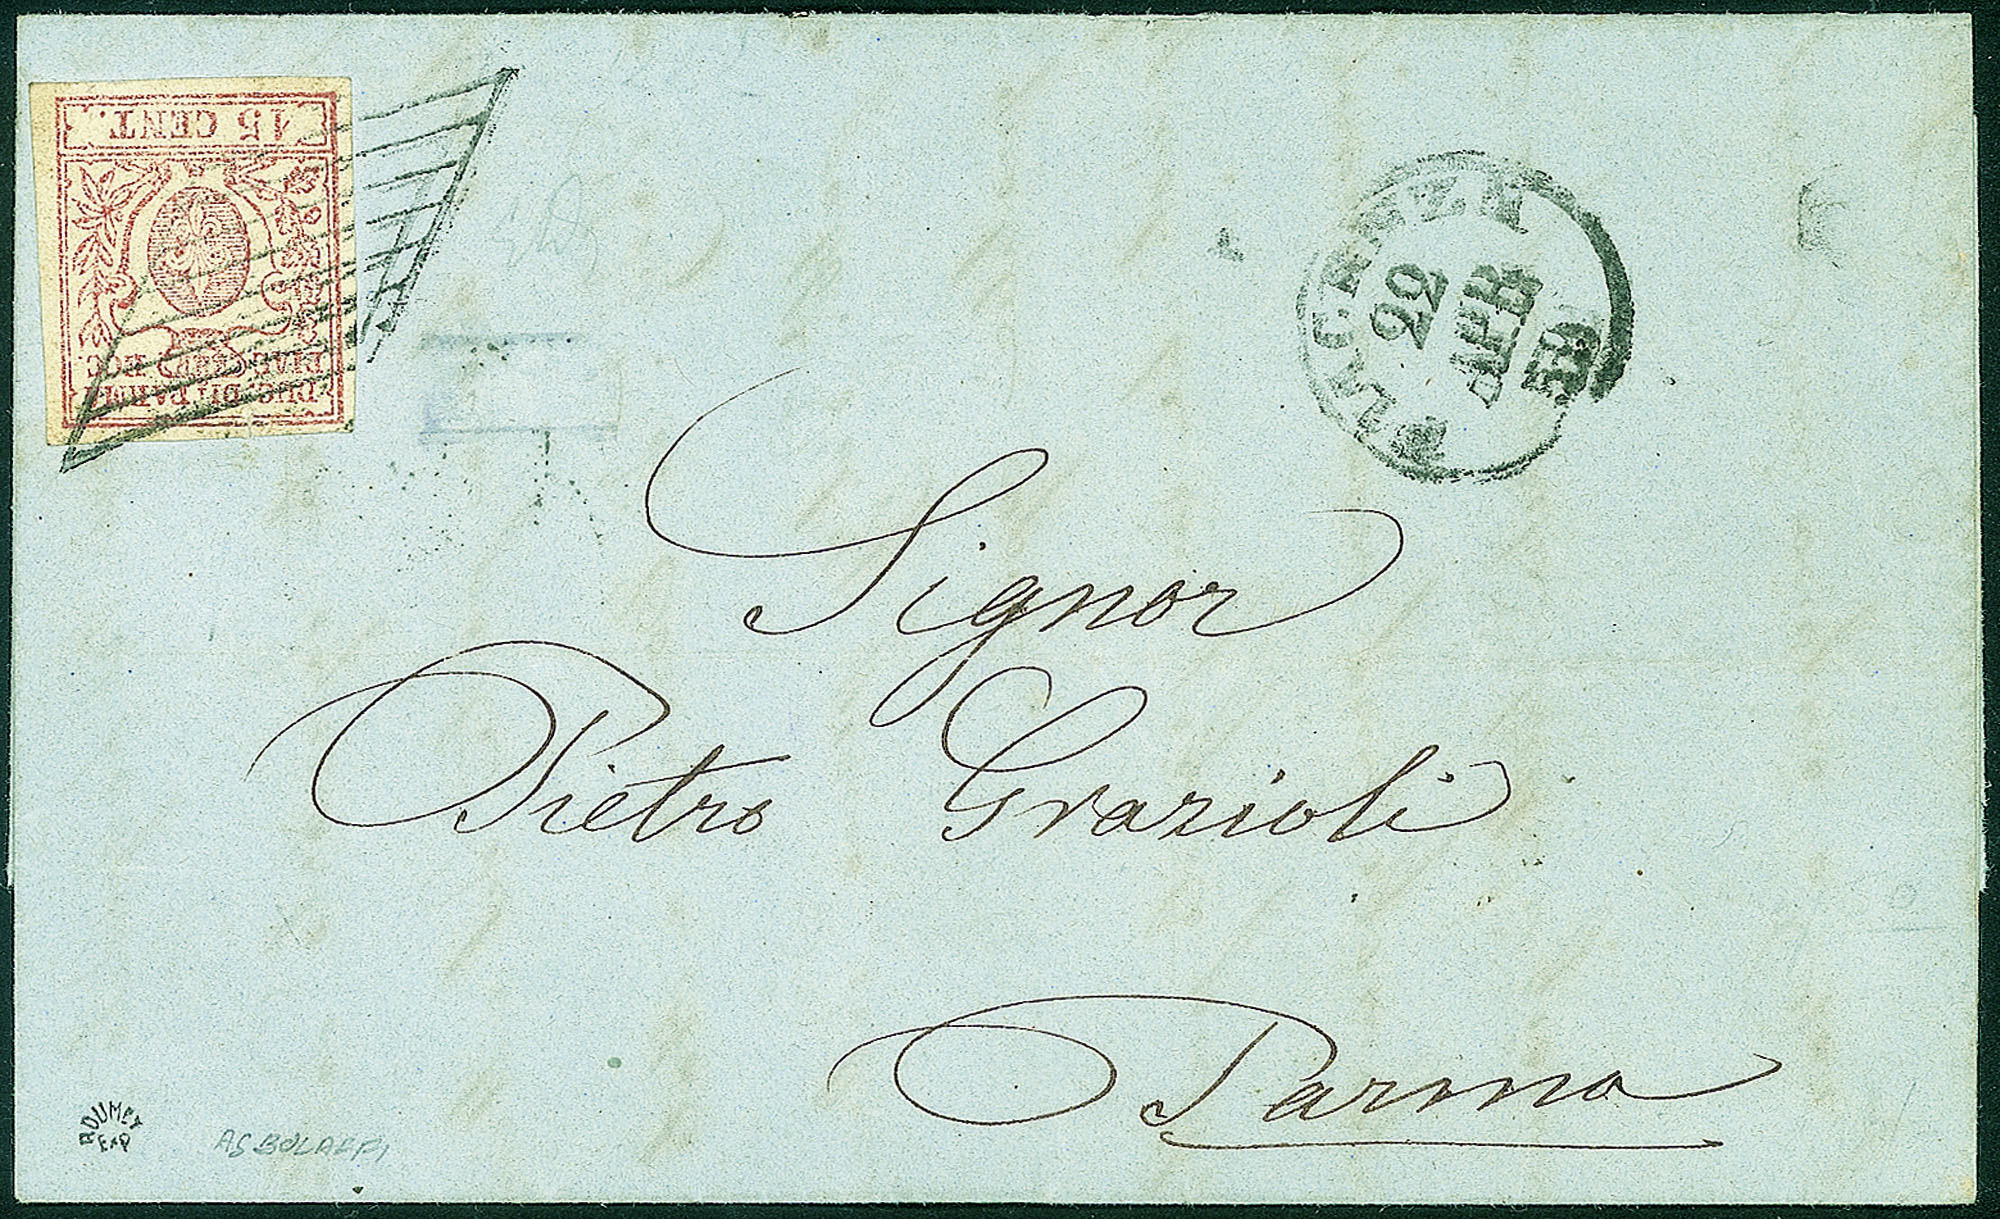 15 CENT.
DUC. DI PARMA
PIAC. ECC.
PIACENZA
22
APR
59
Signor
Pietro Grazioli
Parma
ROUMET
EXP